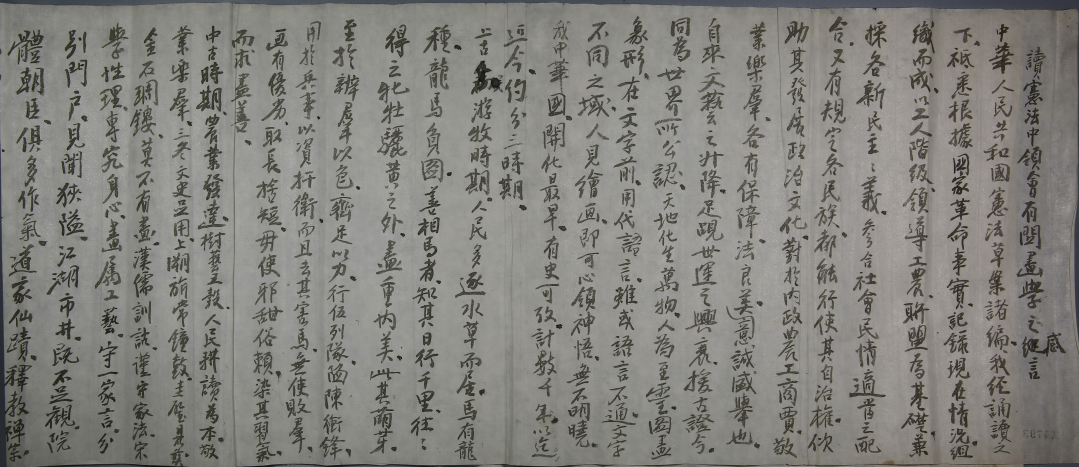 讀憲法中領會有關畫學之經言
底
中華人民共和國憲法草案諸編我經誦讀之
下祗悉根據國家革命事實記錄現在情況組
織而成以工人階級領導工農聯盟為基礎兼
採各新民主主義參合社會民情適當之配
合又有規定各民族都能行使其自治權伙
助其發展政治文化對於內政農工商賈敬
業樂羣各有保障法良美意誠盛舉也
自來文藝之升降足覘世運之興衰捨古證今
同為世界所公認天地化生萬物人為至靈圖畫
象形在文字前用代語言雖或語言不通文字
不同之域人見繪畫即可心領神悟無不明曉
我中華國開化最早有史可攷計數千年以迄
近今約分三時期
上古游牧時期人民多逐水草而居馬有龍
種龍馬負圖善相馬者知其日行千里往往
得之牝牡驪黃之外畫重內美此其萌芽
至於辦羣以色齊足以力行伍列隊陷陳衝鋒
用於兵事以資扞衛而且去其害馬無使敗羣
畫有優劣取長捨短毋使邪甜俗賴染其習氣
而求盡善
中古時期農業發達樹藝五穀人民耕讀為本敬
業樂羣三冬文史足用上溯斫常鐘鼓圭璧彝
金石琱鏤莫不有畫漢儒訓詁謹守家法宋
學性理專究身心畫屬工藝守一家言分
別門戶見聞狹隘江湖市井既不足觀院
體朝臣俱多作氣道家仙蹟釋教禪宗